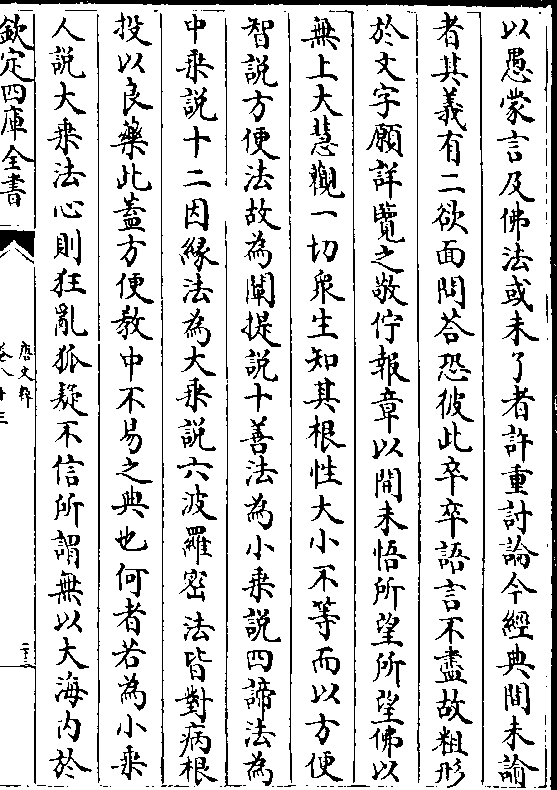 以愚蒙言及佛法或未了者許重討論今經典間未諭
者其義有二欲面問荅恐彼此卒卒語言不盡故粗形
於文字願詳覽之敬佇報章以開未悟所望所望佛以
無上大慧觀一切衆生知其根性大小不等而以方便
智說方便法故為闡提說十善法為小乘說四諦法為
中乘說十二因緣法為大乘說六波羅密法皆對病根
投以良藥此蓋方便教中不易之典也何者若為小乘
人說大乘法心則狂亂狐疑不信所謂無以大海內於
欽定四庫全書
唐文粹
卷八十三
二十三